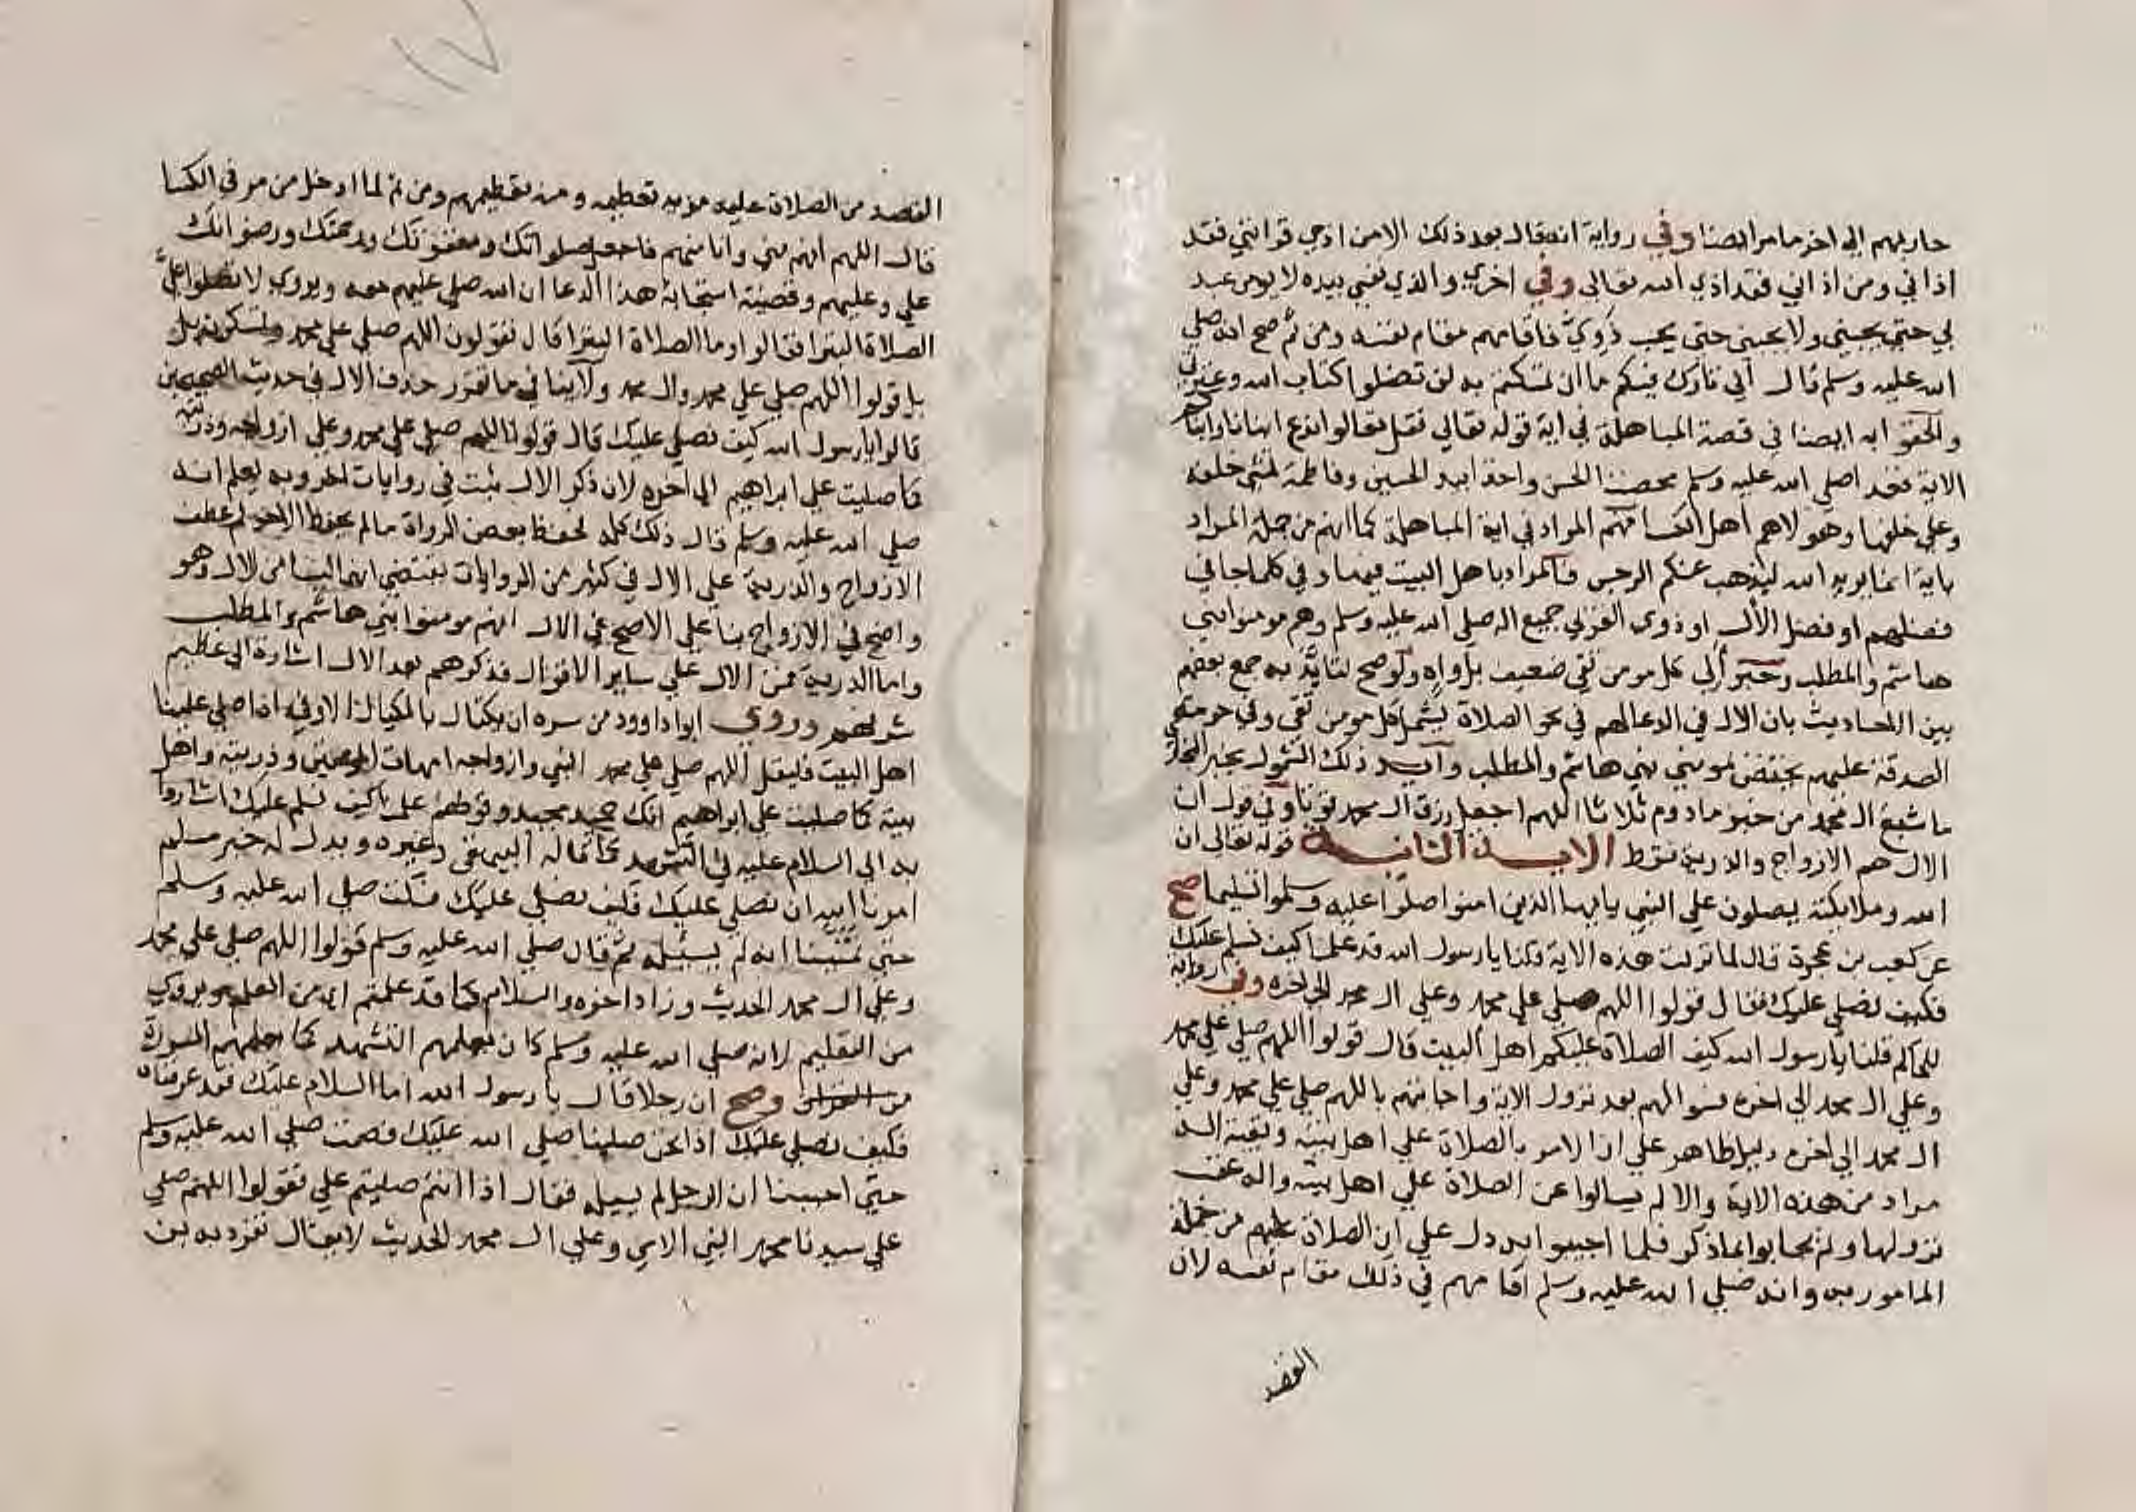 حاربهم الي اخر ما مر ايضا وفي رواية انه قال بعد ذلك الا من اذي قرابتي فقد
اذاني ومن اذاني فقد اذي الله تعالي وفي اخري والذي نفسي بيده لا يومن عبد
بي حتي يحبني ولا يحبني حتي يحب ذوي فاقامهم مقام نفسه ومن ثم صح انه صلي
الله عليه وسلم قال اني تارك فيكم ما ان تمسكتم به لن تضلوا كتاب الله وعترتي
والحقوا به ايضا في قصة المباهلة في اية قوله تعالي فقل تعالوا ندع ابنانا وابناكم
الاية فغدا صلي الله عليه وسلم محتضنا الحسن واخذا بيد الحسين وفاطمة تمشي خلفه
وعلي خلفها وهولاهم اهل الكسا فهم المراد في اية المباهلة كما انهم من جملة المراد
باية انما يريد الله ليذهب عنكم الرجس فالمراد باهل البيت فيها وفي كلما جا في
فضلهم او فضل الال او ذوي القربي جميع اله صلي الله عليه وسلم وهم مومنوا بني
هاشم والمطلب وخبر الي كل مومن تقي ضعيف بل واه ولو صح لتايد به جمع بعضهم
بين الاحاديث بان الال في الدعا لهم في نحو الصلاة يشمل كل مومن تقي وفي حرمة
الصدقة عليهم يختص بمومني بني هاشم والمطلب وايد ذلك الشمول بخبر البخاري
ما شبع ال محمد من خبز مادوم ثلاثا اللهم اجعل رزق ال محمد قوتا وفي قول ان
الال هم الازواج والذرية فقط الاية الثانية قوله تعالي ان
الله وملايكته يصلون علي النبي يايها الذين امنوا صلوا عليه وسلموا تسليما صح
عن كعب بن عجرة قال لما نزلت هذه الاية قلنا يا رسول الله قد علمنا كيف نسلم عليك
فكيف نصلي عليك فقال قولوا اللهم صلي علي محمد وعلي ال محمد الي اخره وفي رواية
للحاكم قلنا يا رسول الله كيف الصلاة عليكم اهل البيت قال قولوا اللهم صلي علي محمد
وعلي ال محمد الي اخره فسوالهم بعد نزول الاية واجابتهم باللهم صلي علي محمد وعلي
ال محمد الي اخره دليل ظاهر علي ان الامر بالصلاة علي اهل بيته وبقية اله
مراد من هذه الاية والا لم يسالوا عن الصلاة علي اهل بيته واله عقب
نزولها ولم يجابوا بما ذكر فلما اجيبوا به دل علي ان الصلاة عليهم من جملة
المامور به وانه صلي الله عليه وسلم اقامهم في ذلك مقام نفسه لان
القصد
١١٧
القصد من الصلاة عليه مزيد تعظيمه ومنه تعظيمهم ومن ثم لما ادخل من مر في الكسا
قال اللهم انهم مني وانا منهم فاجعل صلواتك ومغفرتك ورحمتك ورضوانك
علي وعليهم وقضية استجابة هذا الدعا ان الله صلي عليهم معه ويروي لا تصلوا علي
الصلاة البترا فقالوا وما الصلاة البترا قال تقولون اللهم صلي علي محمد وتمسكون بل
بل قولوا اللهم صلي علي محمد وال محمد ولا ينافي ما تقرر حذف الال في حديث الصحيحين
قالوا يا رسول الله كيف نصلي عليك قال قولوا اللهم صلي علي محمد وعلي ازواجه وذريته
كما صليت علي ابراهيم الي اخره لان ذكر الال ثبت في روايات اخر وبه يعلم انه
صلي الله عليه وسلم قال ذلك كله لحفظ بعض الرواة ما لم يحفظ الاخر ثم عطف
الازواج والذرية علي الال في كثير من الروايات يقتضي انهما ليسا من الال وهو
واضح في الازواج بنا علي الاصح في الال انهم مومنوا بني هاشم والمطلب
واما الذرية فمن الال علي ساير الاقوال فذكرهم بعد الال اشارة الي عظيم
شرفهم وروي ابوا داوود من سره ان يكتال بالمكيال الاوفي اذا صلي علينا
اهل البيت فليقل اللهم صلي علي محمد النبي وازواجه امهات المومنين وذريته واهل
بيته كما صليت علي ابراهيم انك حميد مجيد وقولهم علمنا كيف نسلم عليك اشاروا
به الي السلام عليه في التشهد كما قاله البيهقي وغيره ويدل له خبر مسلم
امرنا الله ان نصلي عليك فكيف نصلي عليك فسكت صلي الله عليه وسلم
حتي تمنينا انه لم يسيله ثم قال صلي الله عليه وسلم قولوا اللهم صلي علي محمد
وعلي ال محمد الحديث وزاد اخره والسلام كما قد علمتم اي من العلم ويروي
من التعليم لانه صلي الله عليه وسلم كان يعلمهم التشهد كما يعلمهم السورة
من القران وصح ان رجلا قال يا رسول الله اما السلام عليك فقد عرفناه
فكيف نصلي عليك اذا نحن صلينا صلي الله عليك فصمت صلي الله عليه وسلم
حتي احببنا ان الرجل لم يسيله فقال اذا انتم صليتم علي فقولوا اللهم صلي
علي سيدنا محمد النبي الامي وعلي ال محمد الحديث لا يقال تفرد به بن